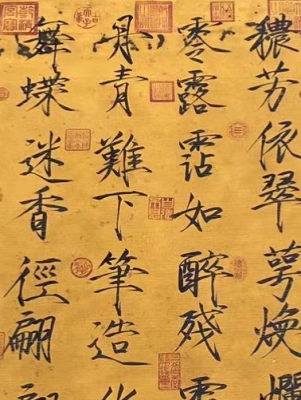 穠芳依翠萼煥爛
零露霑如醉殘
丹青難下筆造
舞蝶迷香徑翩